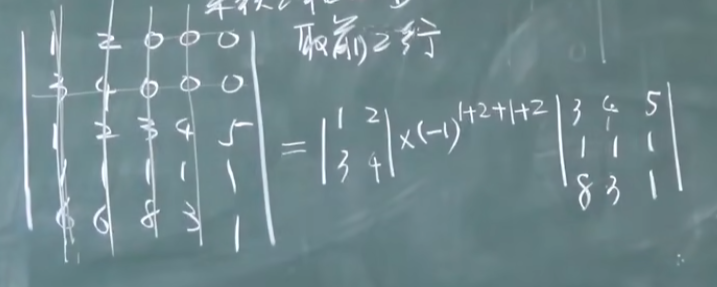 取前2行
1 2 0 0 0
3 4 0 0 0
1 2 3 4 5
1 1 1 1 1
6 6 8 3 1
= | 1 2 | ×(-1)^{1+2+1+2} | 3 4 5 |
| 3 4 | | 1 1 1 |
| 8 3 1 |